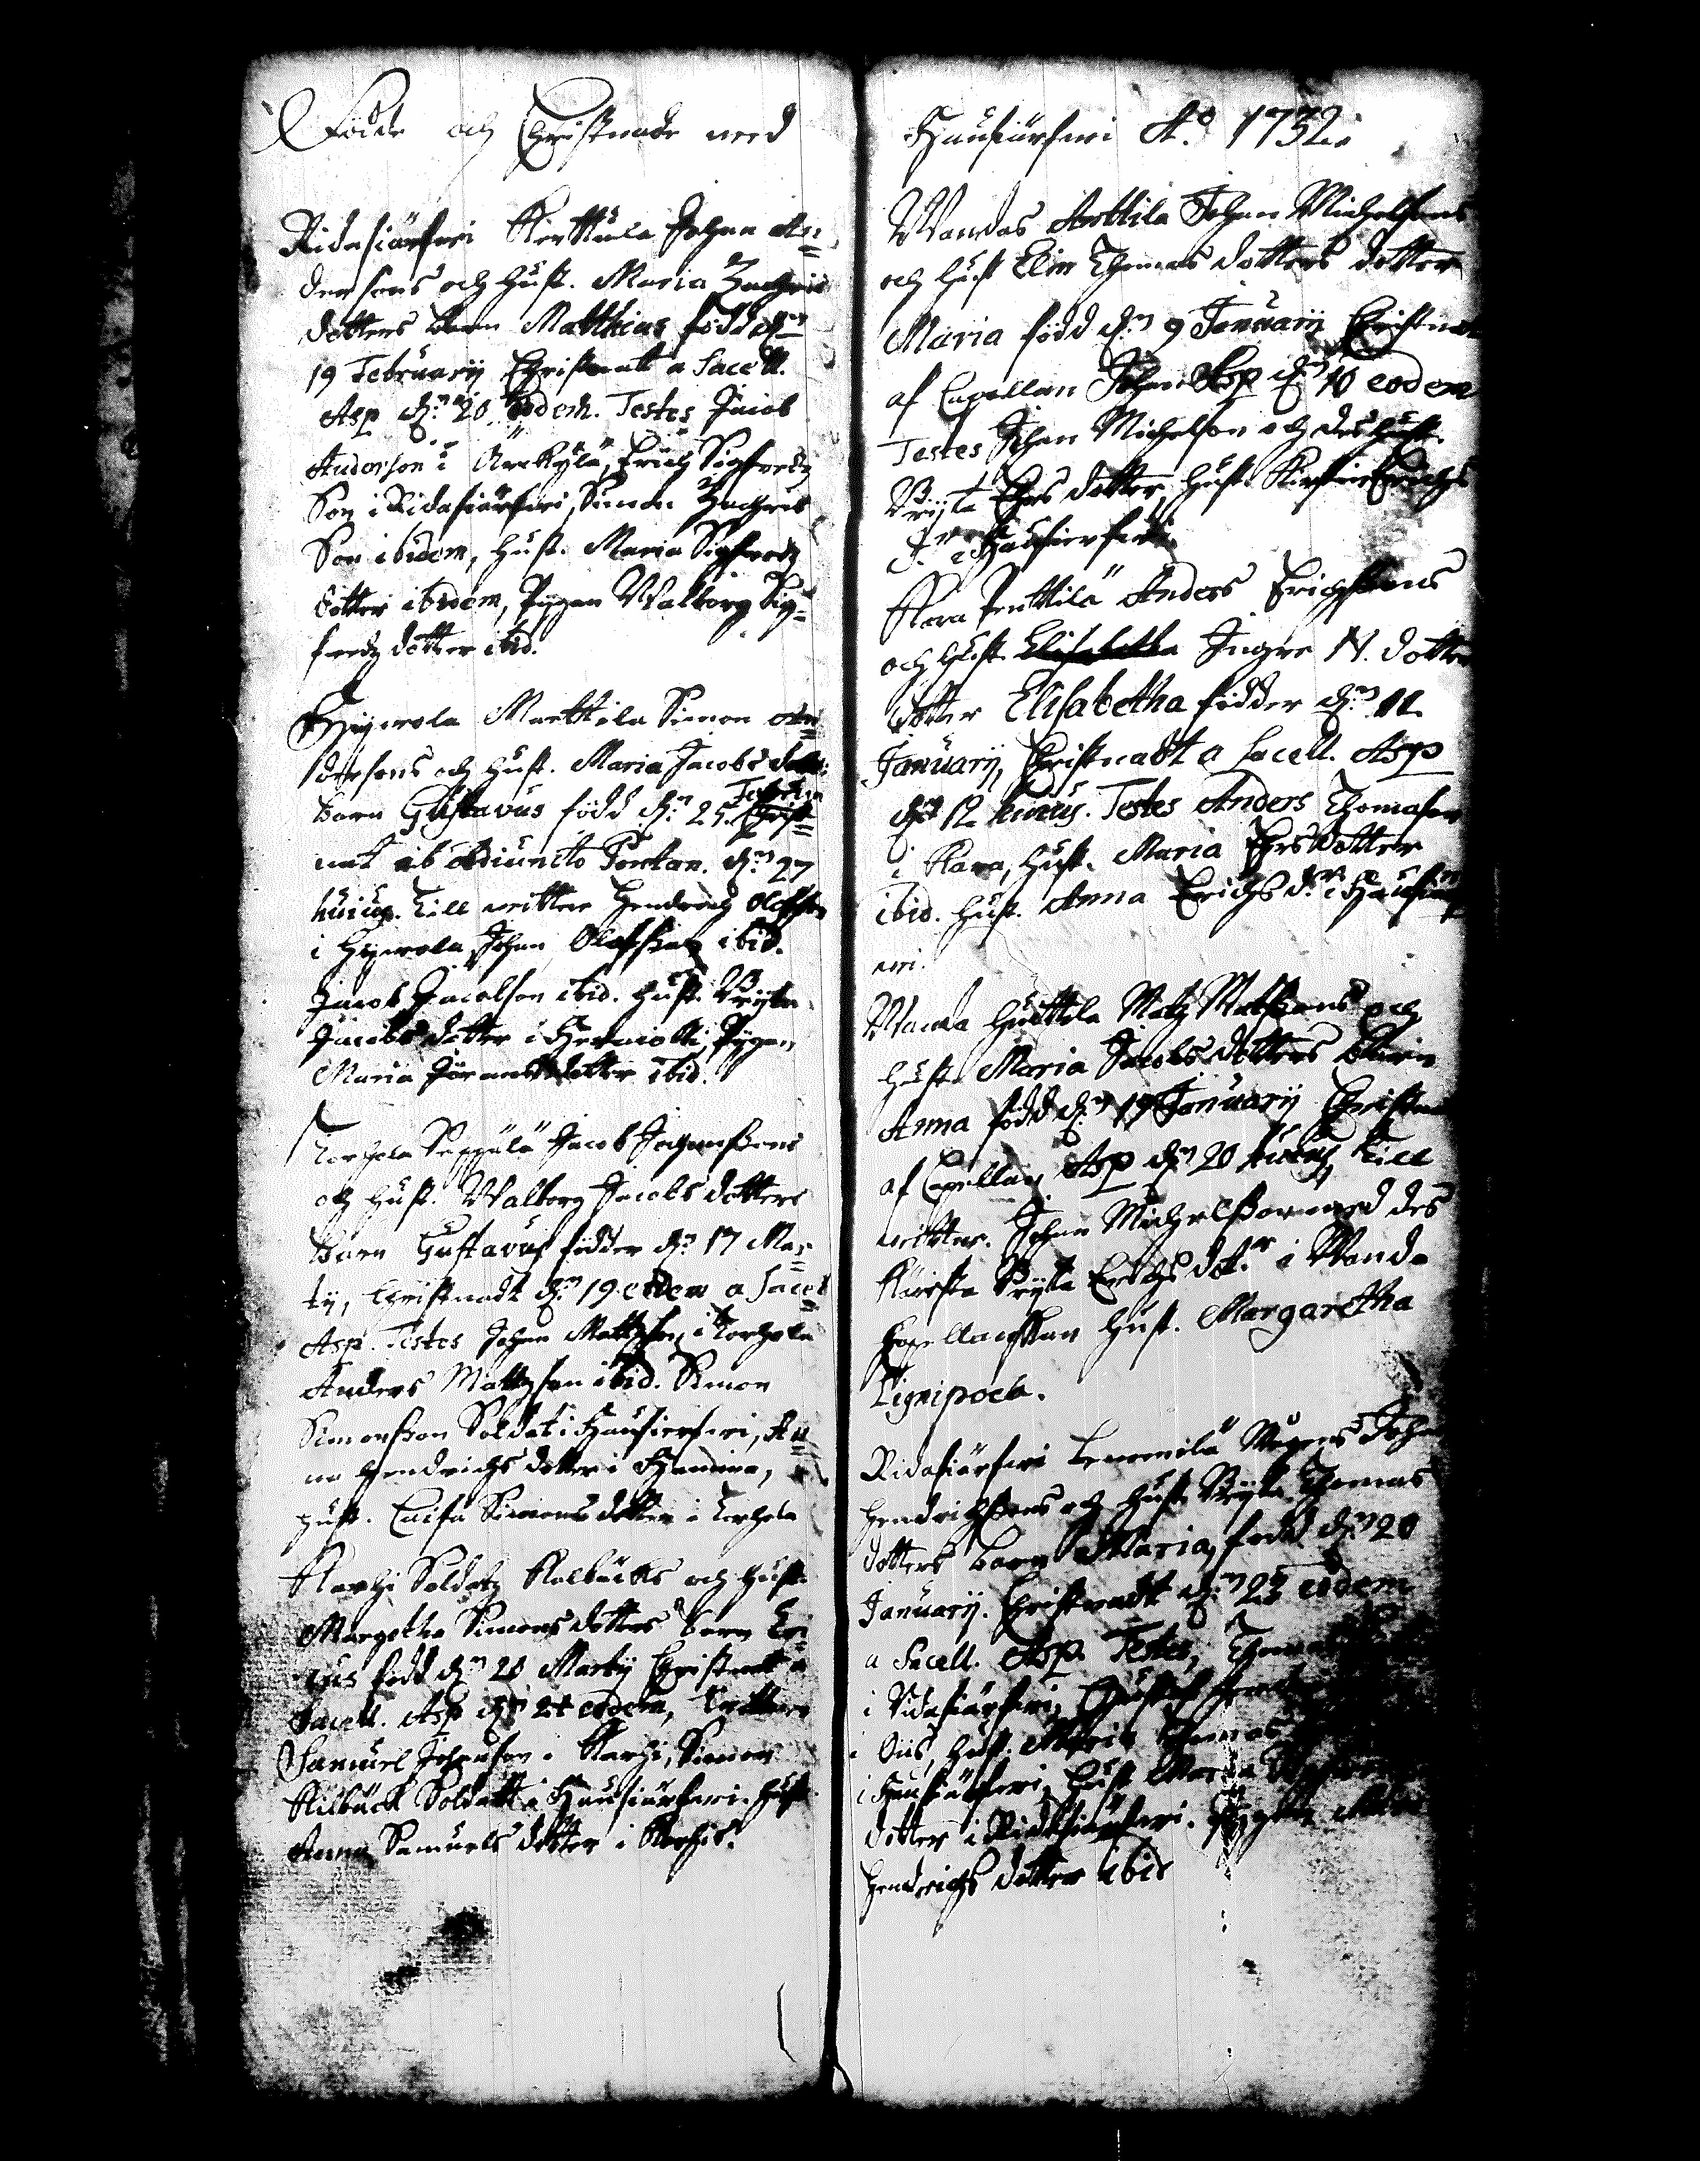 Födde och Christnade wed
Ridasiärfwi Kerttula Johan An=
dersons och Hust. Maria Zachris
dotters barn Matthias född d:n
19 February Christnat a Sacell.
Asp d:n 20 Eodem. Testes Jacob
Anderson i Arckylä, Erich Sigfredz
Son i Ridasiärfwi, Simon Zachris
Son ibidem, Hust. Maria Sigfredz
dotter ibidem, Pygan Walborg Sig=
fredz dotter ibid.
Marttila Simon An
dersons och Hust. Maria Jacobs dott:
barn Gustavus född d:n 25. Christ=
nat ab Adiuncto d:n 27
hujus. Till wittne Hendrich Olofson
i Johan Olofsson ibid.
Jacob Jacobson ibid. Hust. Brijta
Jacobs dotter i Pygan
Maria dotter ibid.
Torhola Seppälä Jacob Johanssons
och Hust. Walborg Jacobs dotters
barn Gustavus födder d:n 17 Mar=
tij, Christnadt d:n 19 eodem a Sacel
Asp. Testes Johan Mattzson i Torhola
Anders Mattzson ibid. Simon
Simonsson Soldat i Hausierfwi, An=
na Hendrichs dotter i
Hust. Caisa Simons dotter i Torhola
Karhi Soldatz Kilbäcks och Hust.
Margetha Simons dotters barn Eri
cus född d:n 20 Martij Christnat a
Sacell. Asp d:n 24 eodem, Wittnen
Samuel Johanson i Karhi, Simon
Kilbäck Soldatt i Hausiärfwi. Hust
Anna Samuels dotter i Karhis.
Hausiärfwi A:o 1732.
Wandas Anttila Johan Michelsons
och Hust Elin Thomas dotters dotter
Maria född d:n 9 January Christnat
af Capellan Johan Asp d:n 10 eodem
Testes Johan Michelson och des Hust.
Brijta Ehrs dotter, Hust. Erichs
d:r i Hausierfwi.
Kara Penttilä Anders Erichsons
och Hust. Elisabetha Ingre N. dotter
dotter Elisabetha födder d:n 11
January, Christnadt a Sacell. Asp
d:n 12 hujus. Testes Anders Thomason
i Kara, Hust. Maria Ehrs dotter
ibid. Hust. Anna Erichs d:r i Hausiär
wi.
Wanda Huttila Matz Matssons och
Hust. Maria Jacobs dotters barn
Anna född d:n 19 January Christnat
af Capellan Asp d:n 20 hujus, Till
wittne. Johan Michelsson med des
Brijta Erichs dot:r i Wanda
Capellanskan Hust. Margaretha
Lignipoea.
Ridasiärfwi Joha
Hendrichssons och Hust. Brijta Thomas
dotters barn Maria, född d:n 20
January. Christnadt d:n 23 eodem
a Sacell. Asp. Testes, Thomas
i Ridasiärfwi,
i Oüs, Hust. Maria Thomas
i Hausiärfwi, Hust Maria
dotter i Ridasiärfwi.
Hendrichs dotter ibid